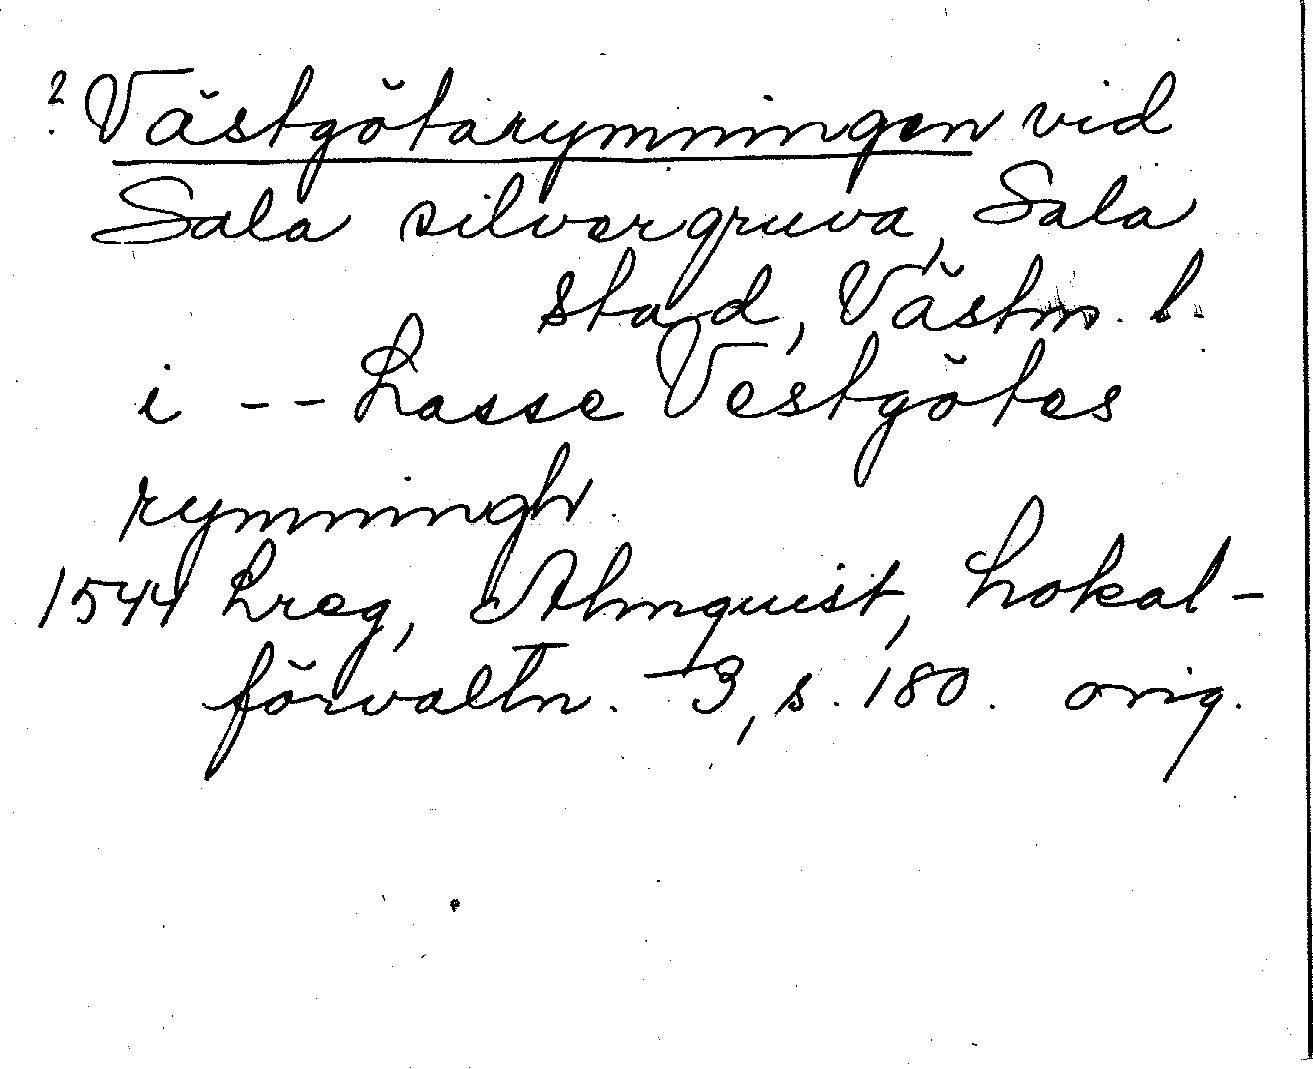 ? Västgötarymningen vid
Sala silvergruva, Sala
stad, Västm. l.
i -- Lasse Vestgötes
rymningh
1544 Lreg, Almquist, Lokal-
förvaltn. 3, s. 180. orig.